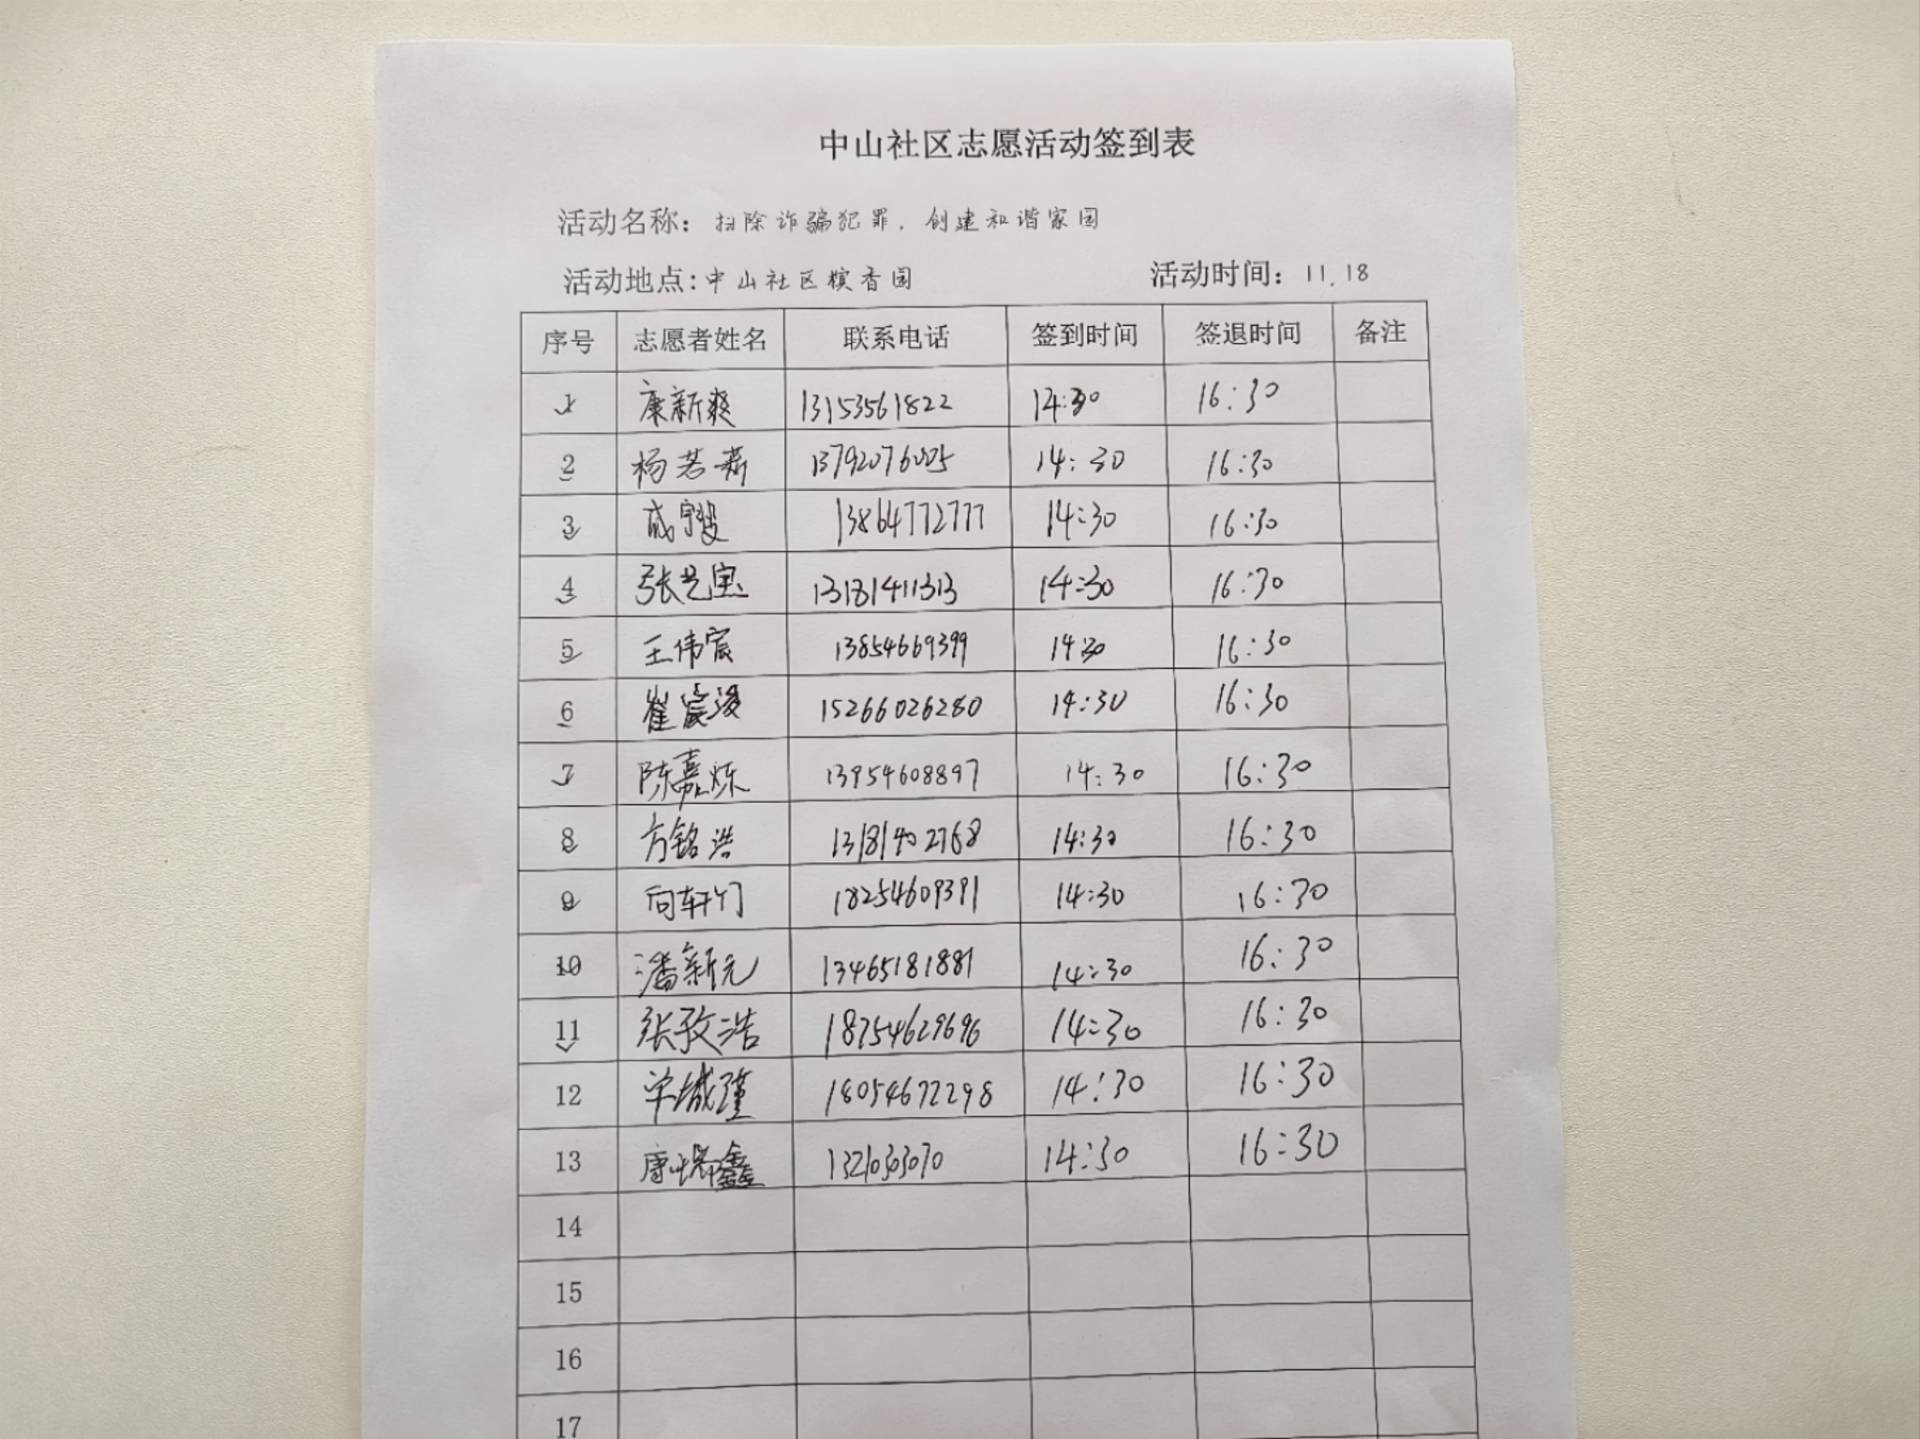 中山社区志愿活动签到表
活动名称: 扫除诈骗犯罪,创建和谐家园
活动地点:中山社区槟香园 活动时间: 11.18
序号 志愿者姓名 联系电话 签到时间 签退时间 备注
1 康新爽 13153561822 14:30 16:30
2 杨若 13792076005 14:30 16:30
3 13864772777 14:30 16:30
4 张艺宝 13181411313 14:30 16:30
5 王伟宸 13854669399 14:30 16:30
6 崔宸浚 15266026280 14:30 16:30
7 陈嘉烁 13954608897 14:30 16:30
8 方铭浩 13181402768 14:30 16:30
9 向轩 18254609391 14:30 16:30
10 潘新元 13465181881 14:30 16:30
11 张孜浩 18754629696 14:30 16:30
12 18054672298 14:30 16:30
13 13210303070 14:30 16:30
14
15
16
17